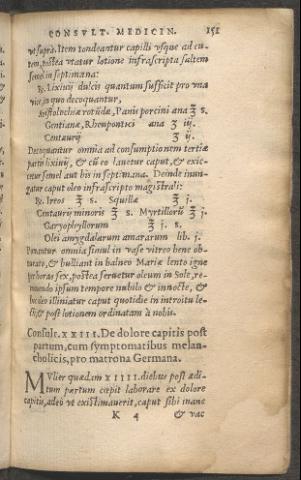 CONSVLT. MEDICIN. 151
vt supra. Item tondeantur capilli vsque ad cu-
tem, postea vtatur lotione infrascripta saltem
semel in septimana:
℞. Lixiuij dulcis quantum sufficit pro vna
vice, in quo decoquantur,
Aristolochiæ rotũdæ, Panis porcini ana ℥ s.
Gentianæ, Rhepontici ana ʒ iij.
Centaurij ʒ ij.
Decoquantur omnia ad consumptionem tertiæ
partis lixiuij, & cũ eo lauetur caput, & exic-
cetur semel aut bis in septimana. Deinde inun-
gatur caput oleo infrascripto magistrali:
℞. Ireos ℥ s. Squillæ ℥ j.
Centaurij minoris ℥ s. Myrtillorũ ℥ j.
Caryophyllorum ℥ j. s.
Olei amygdalarum amararum lib. j.
Ponantur omnia simul in vase vitreo bene ob-
turato, & bulliant in balneo Mariæ lento igne
per horas sex, postea seruetur oleum in Sole, re-
mouendo ipsum tempore nubilo & in nocte, &
hoc oleo illiniatur caput quotidie in introitu le-
cti, & post lotionem ordinatam à nobis.
Consule. XXIII. De dolore capitis post
partum, cum symptomatibus melan-
cholicis, pro matrona Germana.
MVlier quædam XIIII. diebus post ædi-
tum partum cœpit laborare ex dolore
capitis, adeò vt existimauerit, caput sibi inane
K 4 & vac